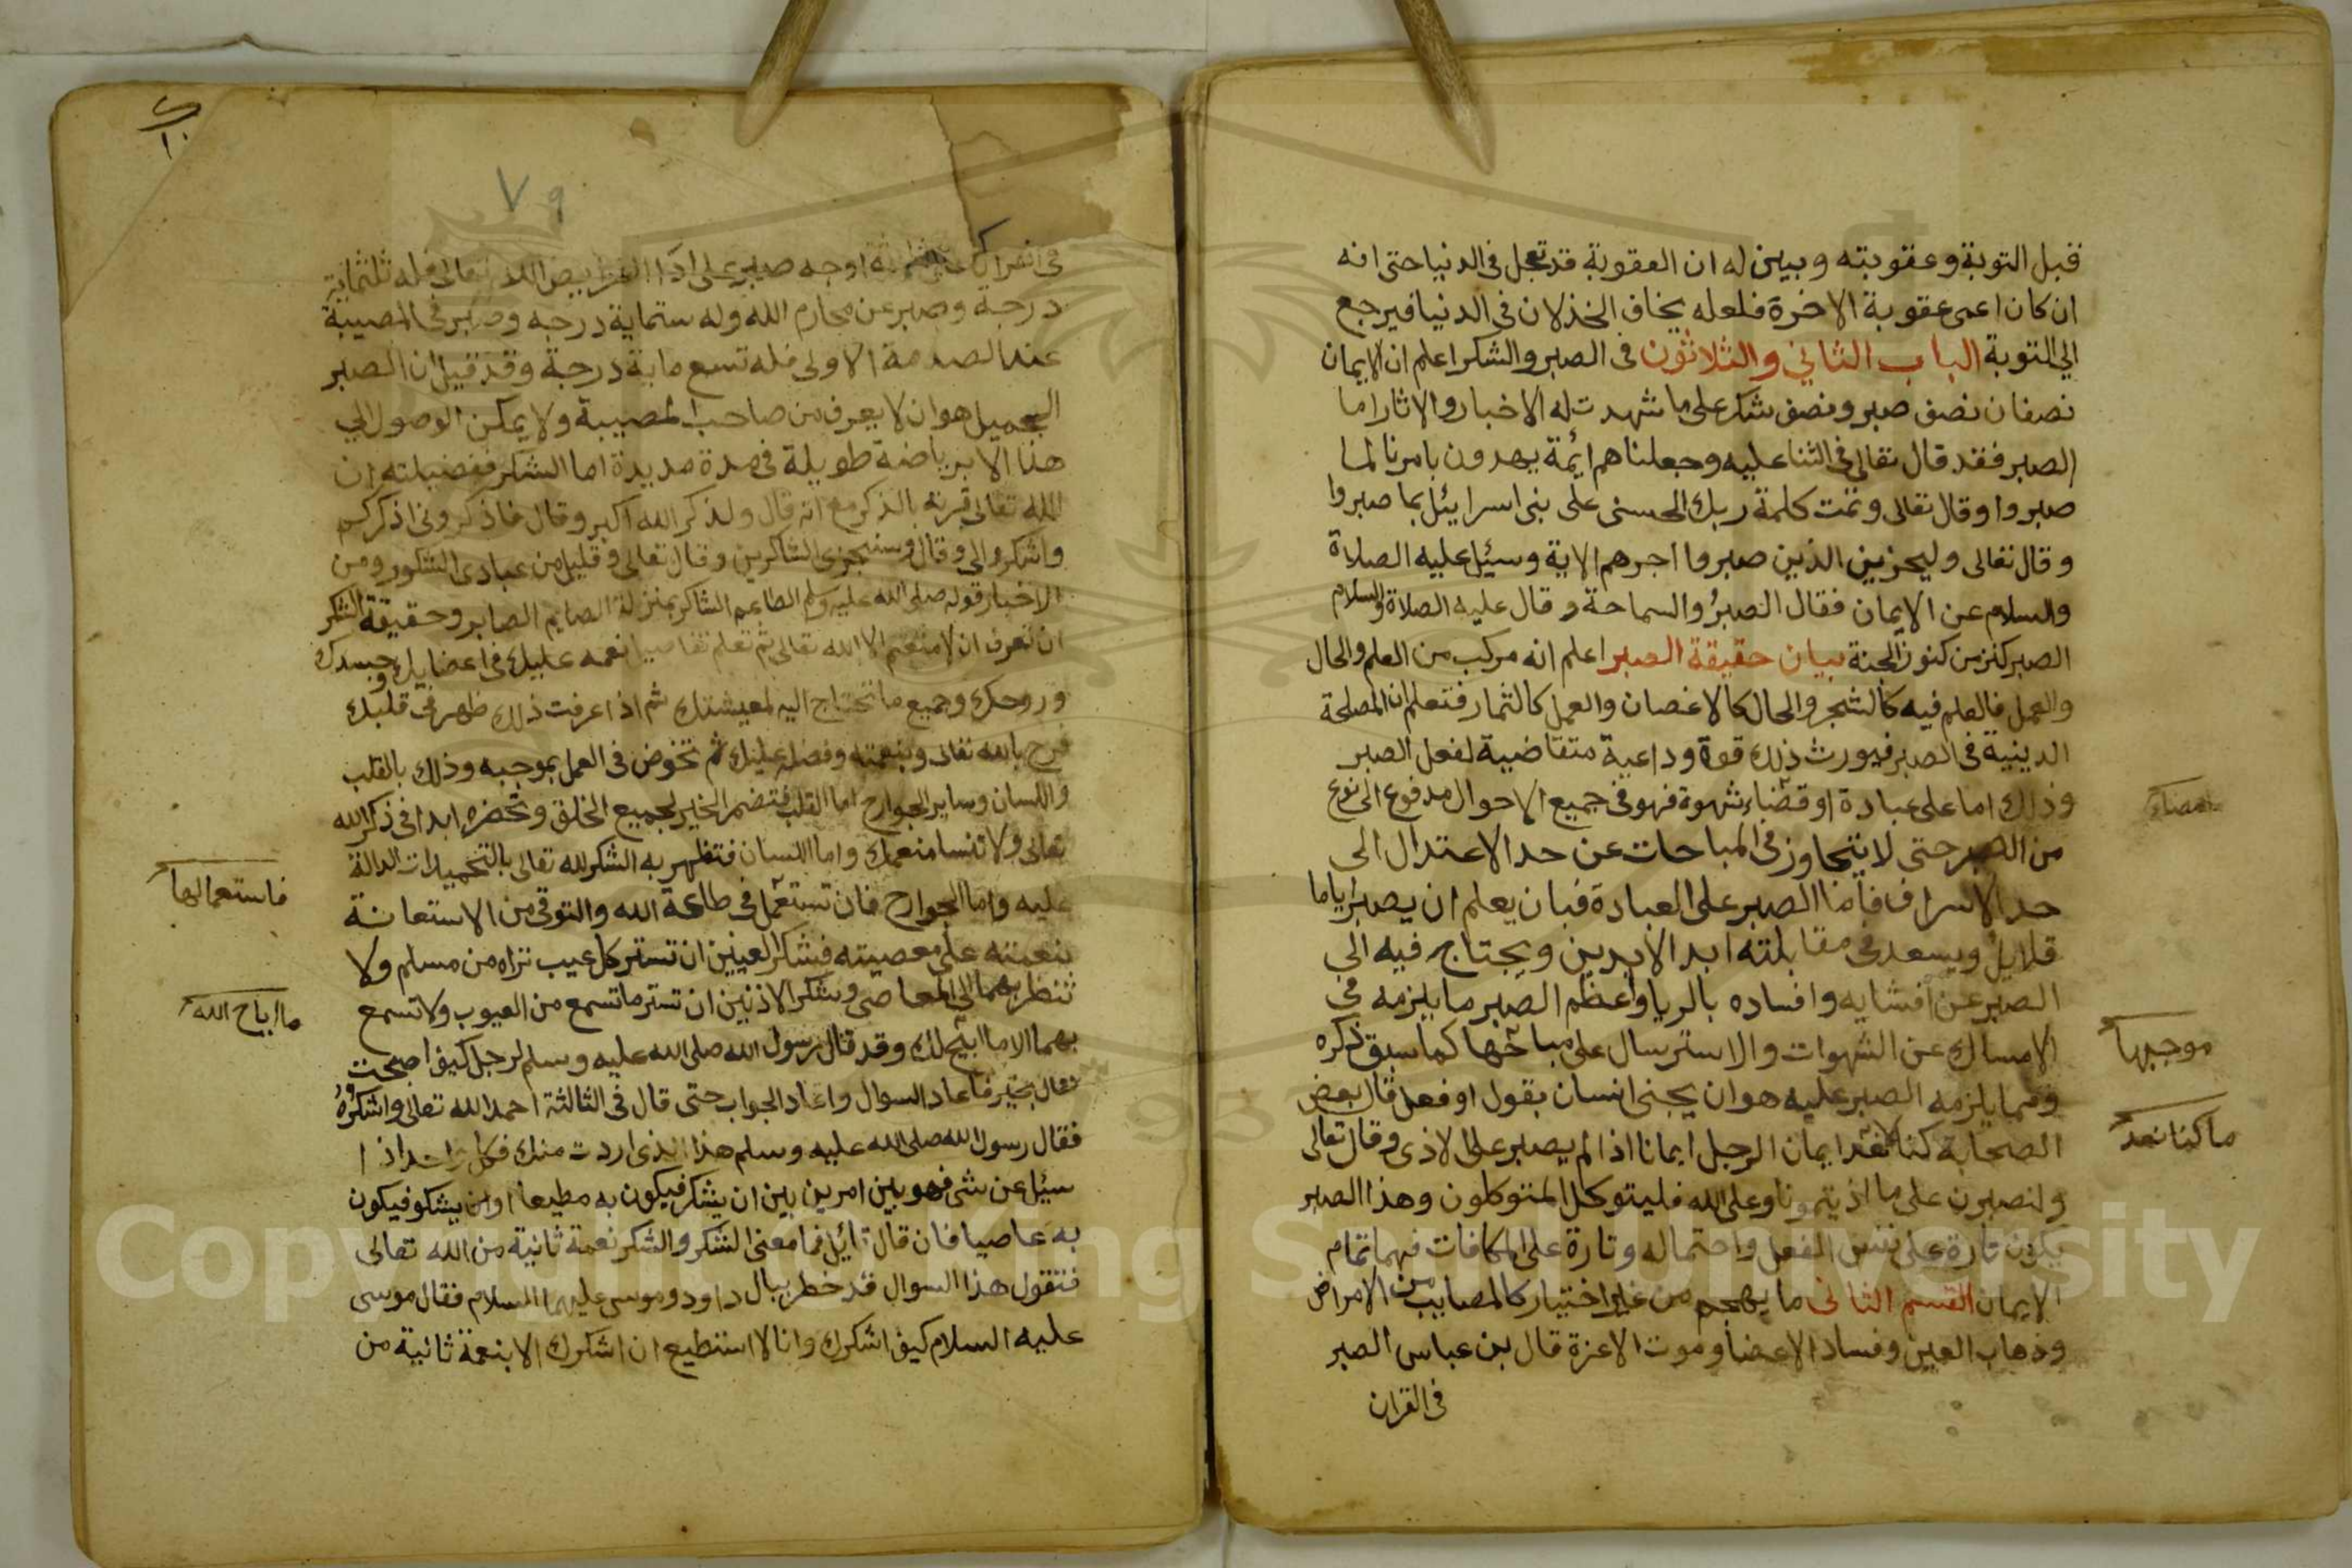 قبل التوبة وعقوبته وبين له ان العقوبة قد تعجل فى الدنيا حتى انه
ان كان اعمى عقوبة الاخرة فلعله يخاف الخذلان فى الدنيا فيرجع
الي التوبة الباب الثاني والثلاثون فى الصبر والشكر اعلم ان الايمان
نصفان نصف صبر ونصف شكر على ما شهدت له الاخبار والاثار اما
الصبر فقد قال تعالى فى الثنا عليه وجعلناهم ائمة يهدون بامرنا لما
صبروا وقال تعالى وتمت كلمة ربك الحسنى على بنى اسرايئل بما صبروا
وقال تعالى وليجزين الذين صبروا اجرهم الاية وسيئل عليه الصلاة
والسلام عن الايمان فقال الصبرُ والسماحة وقال عليه الصلاة والسلام
الصبر كنز من كنوز الجنة بيان حقيقة الصبر اعلم انه مركب من العلم والحال
والعمل فالعلم فيه كالشجر والحال كالاغصان والعمل كالثمار فتعلم ان المصلحة
الدينية فى الصبر فيورث ذلك قوة وداعية متقاضية لفعل الصبر
وذلك اما على عبادة او قضاء شهوة فهو فى جميع الاحوال مدفوع الى نوع
من الصبر حتى لا يتجاوز فى المباحات عن حد الاعتدال الى
حد الاسراف فاما الصبر على العبادة فبان يعلم ان يصبر اياما
قلايل ويسعد فى مقابلته ابد الابدين ويحتاج فيه الي
الصبر عن افشايه وافساده بالريا واعظم الصبر ما يلزمه في
الامساك عن الشهوات والاسترسال على مباحها كما سبق ذكره
ومما يلزمه الصبر عليه هو ان يجنى انسان بقول او فعل قال بعض
الصحابة كنا لا نعد ايمان الرجل ايمانا اذا لم يصبر على الاذى وقال تعالى
ولنصبرن على ما اذيتمونا وعلى الله فليتوكل المتوكلون وهذا الصبر
يكون تارة على نفس الفعل واحتماله وتارة على المكافات فهما تمام
الايمان القسم الثانى ما يهجم من غير اختيار كالمصايب من الامراض
وذهاب العين وفساد الاعضا وموت الاعزة قال بن عباس الصبر
فى القران
موجبها
ما كنا نعد
٧٩
فى القران على ثلاثة اوجه صبر على اداء الفرايض الله تعالى فله ثلثماية
درجة وصبر عن محارم الله وله ستماية درجه وصبر فى المصيبة
عند الصدمة الاولى فله تسع ماية درجة وقد قيل ان الصبر
الجميل هو ان لا يعرف من صاحب المصيبة ولا يمكن الوصول الي
هذا الا برياضة طويلة فى مدة مديدة اما الشكر ففضيلته ان
الله تعالى قرنه بالذكر مع انه قال ولذكر الله اكبر وقال فاذكرونى اذكركم
واشكروا لى وقال وسنجزى الشاكرين وقال تعالى وقليل من عبادى الشكور ومن
الاخبار قوله صلى الله عليه وسلم الطاعم الشاكر بمنزلة الصايم الصابر وحقيقة الشكر
ان تعرف ان لا منعم الا الله تعالى ثم تعلم تفاصيل نعمه عليك فى اعضايك وجسدك
وروحك وجميع ما تحتاج اليه لمعيشتك ثم اذا عرفت ذلك ظهر فى قلبك
فرح بالله تعالى وبنعمته وفضله عليك ثم تخوض فى العمل بموجبه وذلك بالقلب
واللسان وساير الجوارح اما القلب فتضمر الخير لجميع الخلق وتحضره ابدا فى ذكر الله
تعالى ولا تنسا منعمك واما اللسان فتظهر به الشكر لله تعالى بالتحميدات الدالة
عليه واما الجوارح فان تستعمل فى طاعة الله والتوقى من الاستعانة
بنعمته على معصيته فشكر العينين ان تستر كل عيب تراه من مسلم ولا
تنظر بهما الى المعاصى وشكر الاذنين ان تستر ما تسمع من العيوب ولا تسمع
بهما الا ما ابيح لك وقد قال رسول الله صلى الله عليه وسلم لرجل كيف اصبحت
فقال بخير فاعاد السوال واعاد الجواب حتى قال فى الثالثة احمد الله تعالى واشكرهُ
فقال رسول الله صلى الله عليه وسلم هذا الذى اردت منك فكل واحد اذا
سيئل عن شى فهو بين امرين بين ان يشكر فيكون به مطيعا او ان يشكو فيكون
به عاصيا فان قال قائل فما معنى الشكر والشكر نعمة ثانية من الله تعالى
فنقول هذا السوال قد خطر ببال داود وموسى عليهما السلام فقال موسى
عليه السلام كيف اشكرك وانا لا استطيع ان اشكرك الا بنعمة ثانية من
فاستعمالها
ما اباح الله
Copyright © King Saud University